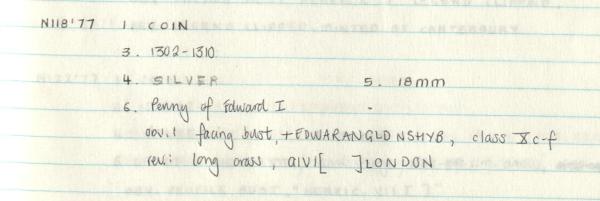 N118'77 1. COIN
3. 1302-1310
4. SILVER 5. 18mm
6. Penny of Edward I -
obv.: facing bust, +EDWARANGLDNSHYB, class Xc-f
rev.: long cross, CIVI[ ]LONDON